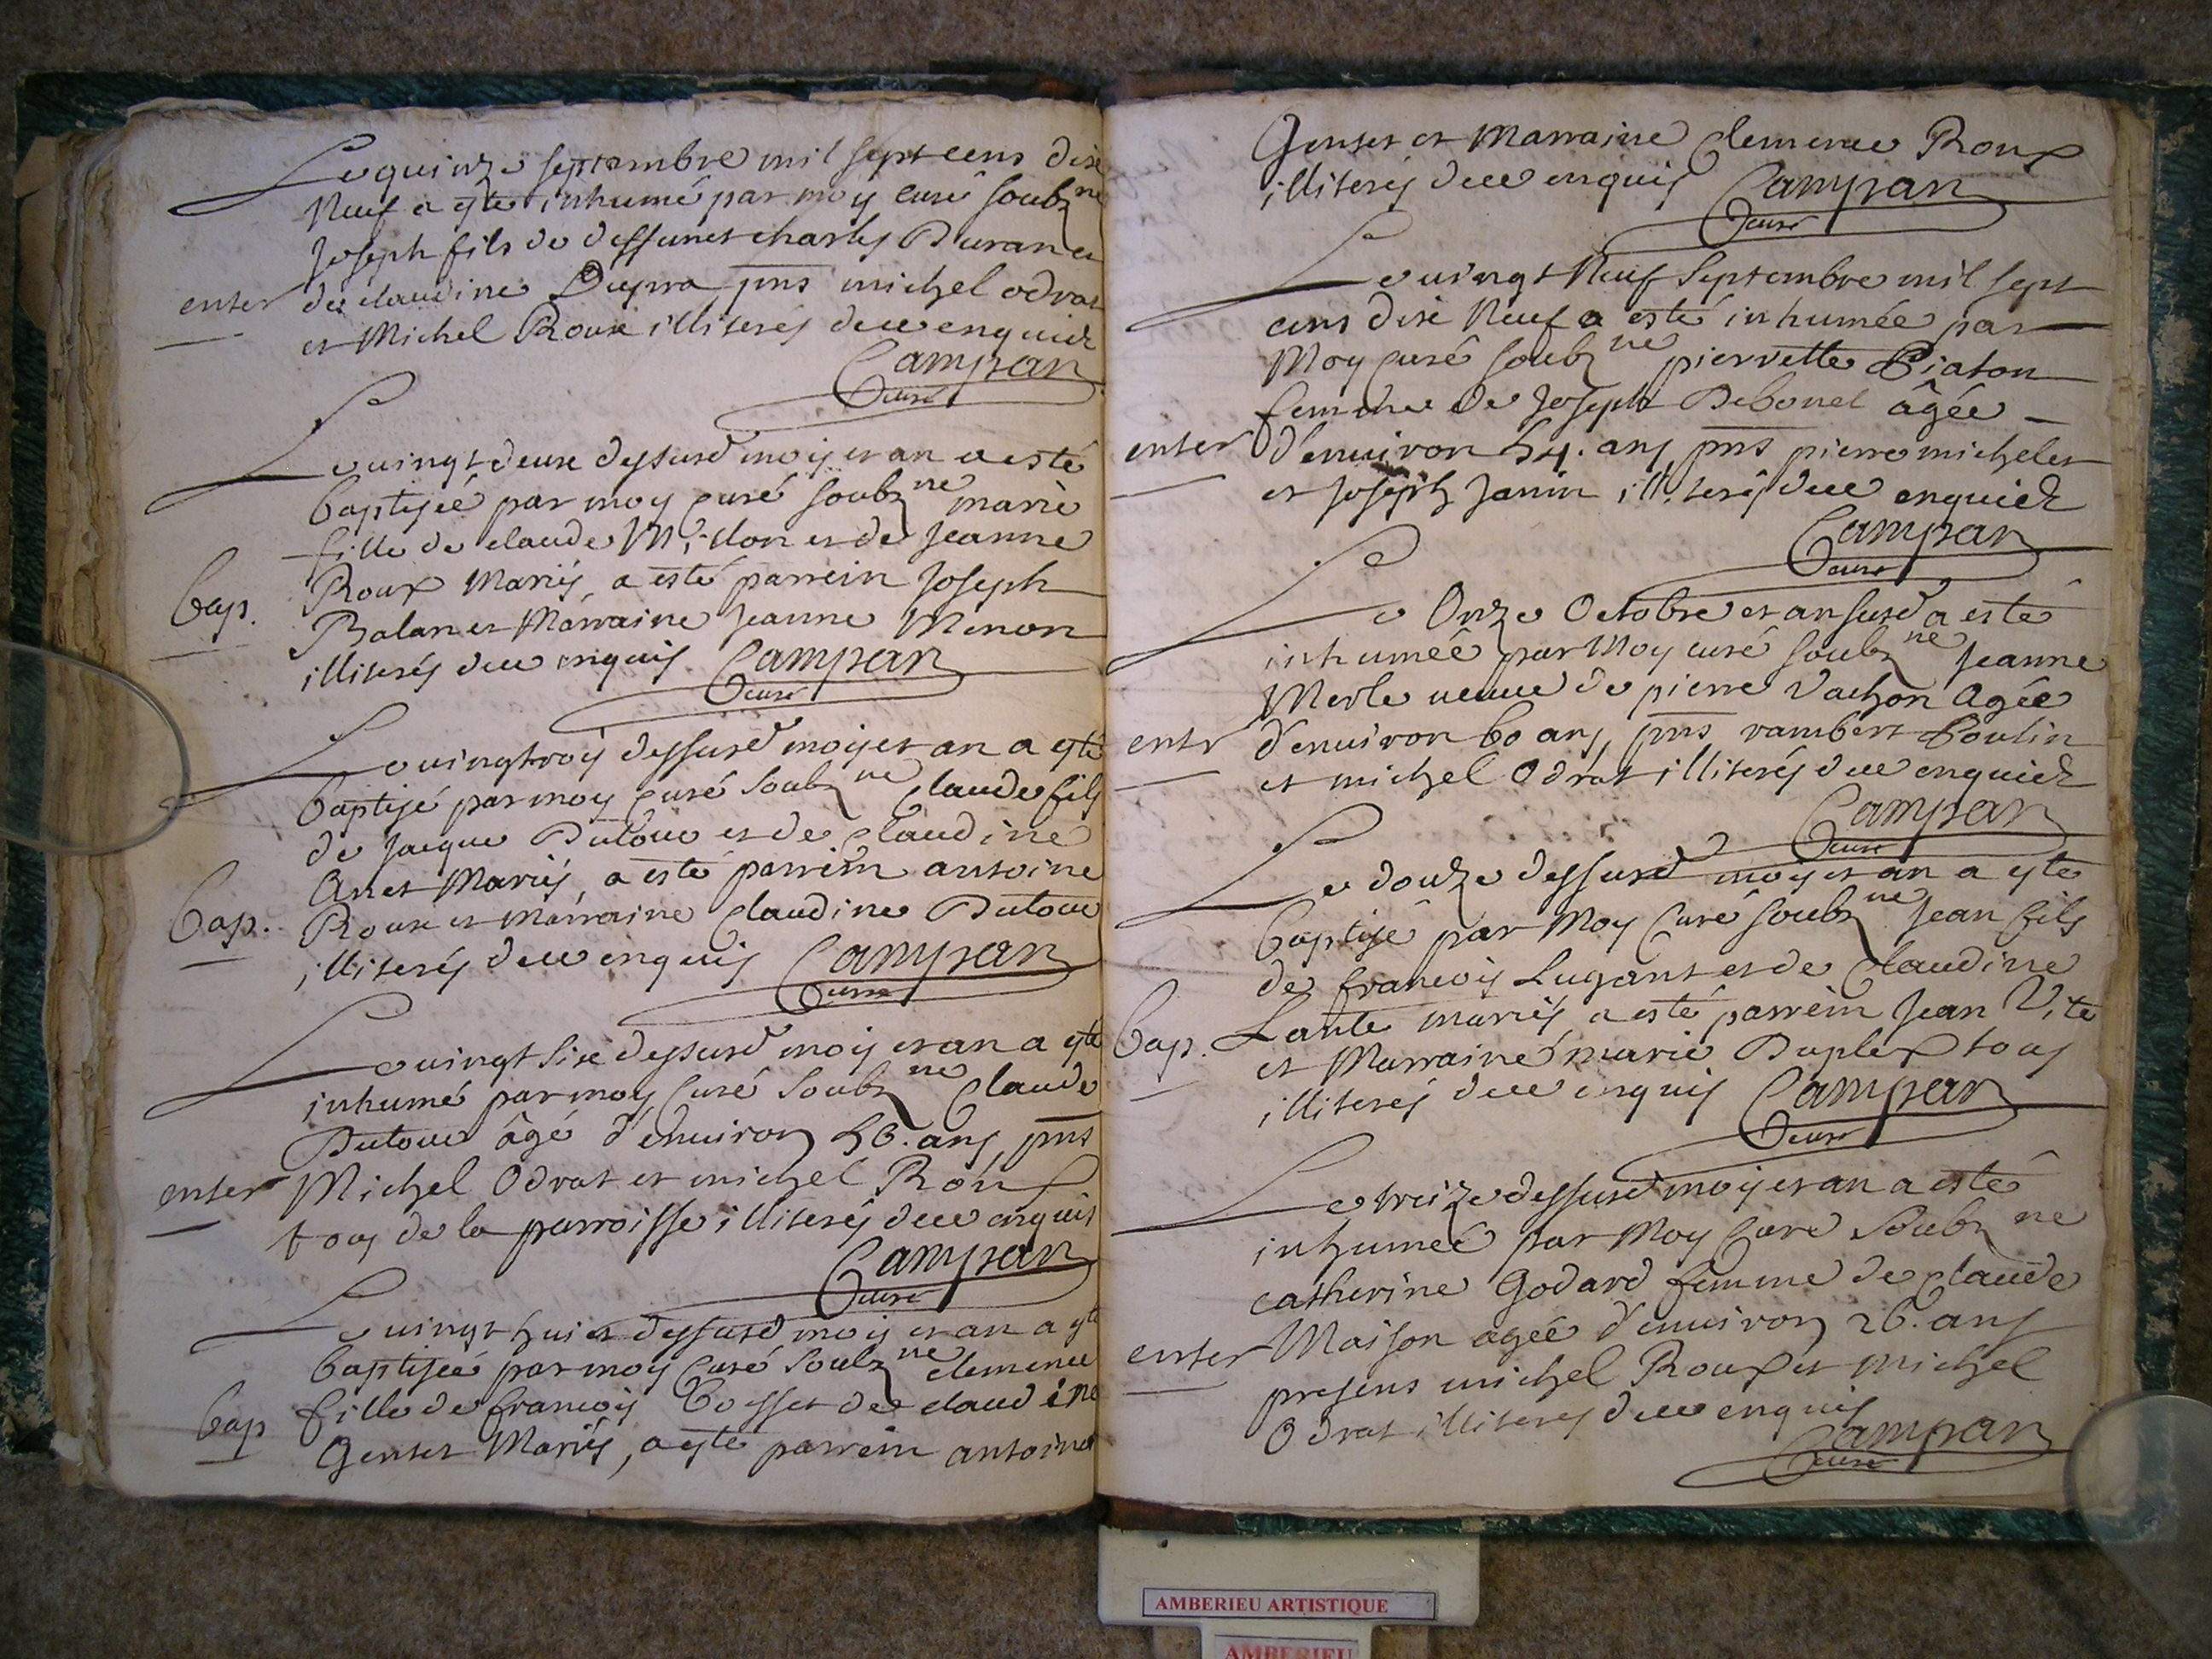 Le quinze septembre mil sept cens dixe
Neuf a este inhumé par moy curé soubz ne
Joseph fils de deffunct charles Duran et
enter de claudine Dupra pns michel odrat
et Michel Rouxe illiterés deue enquiez
Campan
curé
Le uingt deux dessusd mois et an a esté
baptisée par moy curé soubz ne marie
fille de claude Millon et de Jeanne
Bap. Roux Mariés, a esté parrein Joseph
Balan et Marraine Jeanne Menon
illiterés deue enquis Campan
curé
Le uingtrois dessusd mois et an a esté
baptisé par moy curé soubz ne claude fils
de Jacque Dutour et de claudine
Anet Mariés, a esté parrein antoine
Bap. Roux et Marraine claudine Dutour
illiterés deue enquis Campan
curé
Le uingt sixe dessusd mois et an a esté
inhumé par moy curé soubz ne claude
Dutour âgé d'enuiron 56. ans, pns
enter Michel Odrat et michel Roux
tous de la parroisse illiterés deue enquis
Campan
curé
Le uingt huit dessusd mois et an a esté
baptisée par moy curé soubz ne clemence
Bap fille de francois et de claudine
Gentet Mariés, a esté parrein antoine
Gentet et Marraine Clemence Roux
illiterés deue enquis Campan
curé
Le uingt Neuf Septembre mil sept
cens dixe Neuf a esté inhumée par
Moy curé soubz ne pierrette Piaton
femme de Joseph Debonel âgée
enter d'enuiron 54. ans pns pierre michelet
et Joseph Janin illiterés deue enquiez
Campan
curé
Le Onze Octobre et an susd a esté
inhumée par Moy curé soubz ne Jeanne
Merle ueuue de pierre Vachon Agée
entr d'enuiron 60 ans, pns rambert Poulin
et michel Odrat illiterés deue enquiez
Campan
curé
Le douze dessusd mois et an a esté
baptisé par Moy Curé soubz ne Jean fils
de francois Lugant et de Claudine
Bap. Lante mariés, a esté parrein Jean Vite
et Marraine marie Duplex tous
illiterés deue enquis Campan
curé
Le treize dessusd mois et an a esté
inhumée par Moy Curé soubz ne
catherine Godard femme de claude
enter Maison agée d'enuiron 26. ans
presens michel Roux et michel
Odrat illiterés deue enquis
Campan
curé
AMBERIEU ARTISTIQUE
AMBERIEU